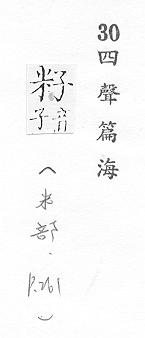 30四聲篇海
籽
子音
(米部.P.261)